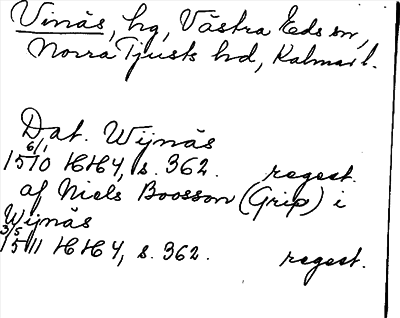 Vinäs, hg, Västra Eds sn,
Norra Tjusts hd, Kalmar l.
Dat. Wijnäs
6/1
1510 HH4, s. 362. regest.
af Niels Boosson (Grip) i
Wijnäs
3/5
1511 HH4, s. 362. regest.